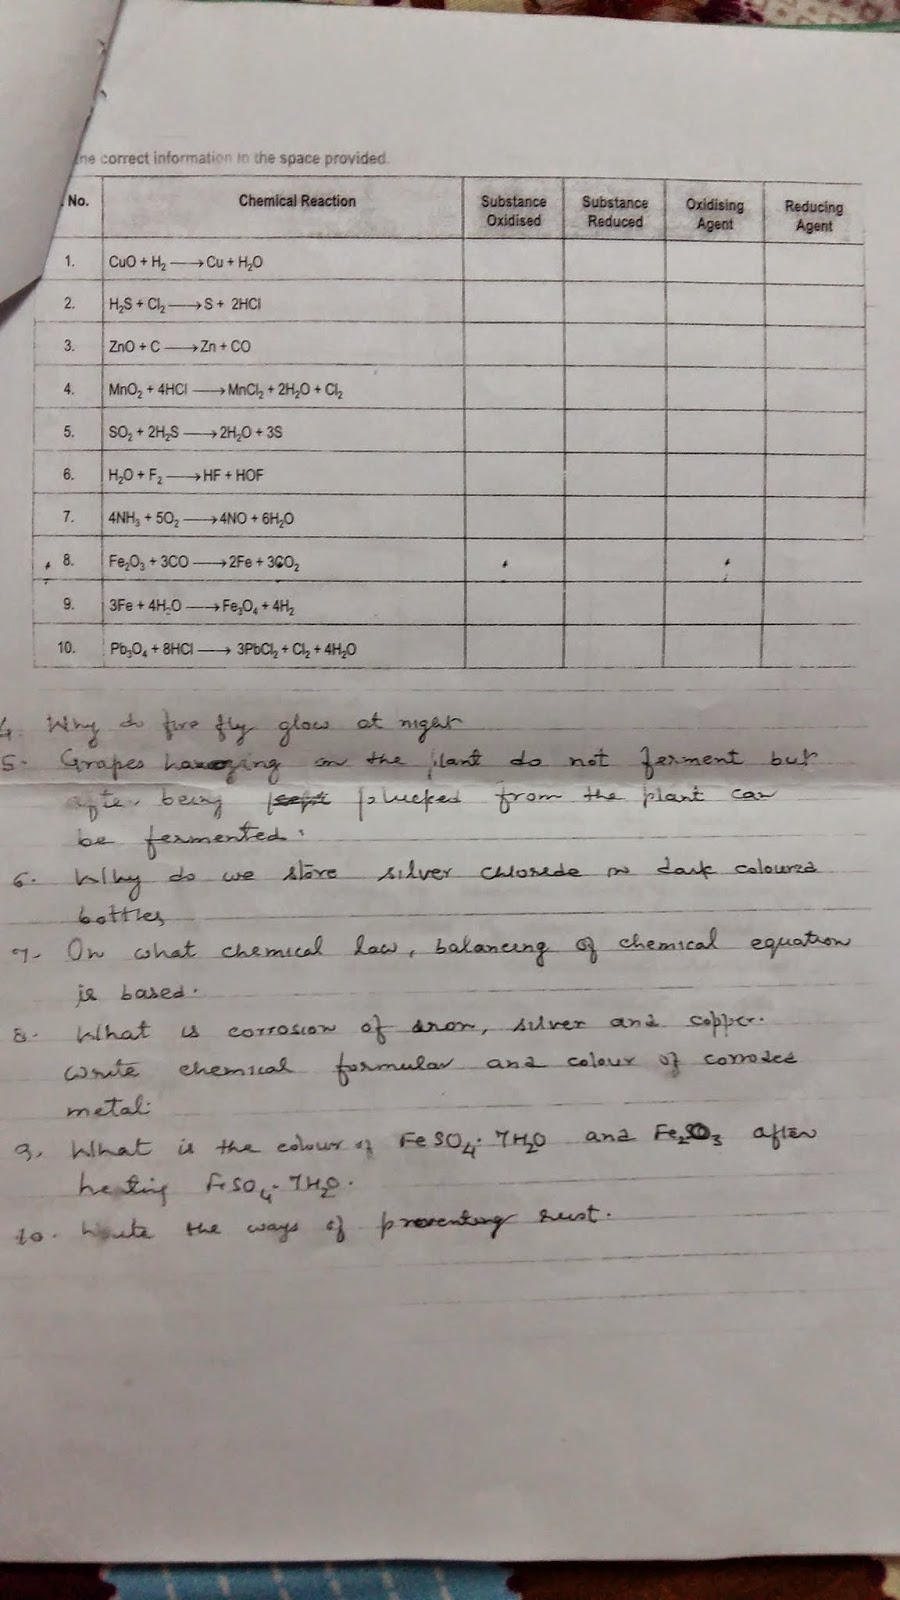 he correct information in the space provided.
No. Chemical Reaction Substance Oxidised Substance Reduced Oxidising Agent Reducing Agent
1. CuO + H₂ ⟶ Cu + H₂O
2. H₂S + Cl₂ ⟶ S + 2HCl
3. ZnO + C ⟶ Zn + CO
4. MnO₂ + 4HCl ⟶ MnCl₂ + 2H₂O + Cl₂
5. SO₂ + 2H₂S ⟶ 2H₂O + 3S
6. H₂O + F₂ ⟶ HF + HOF
7. 4NH₃ + 5O₂ ⟶ 4NO + 6H₂O
8. Fe₂O₃ + 3CO ⟶ 2Fe + 3CO₂
9. 3Fe + 4H₂O ⟶ Fe₃O₄ + 4H₂
10. Pb₃O₄ + 8HCl ⟶ 3PbCl₂ + Cl₂ + 4H₂O
4. Why do fire fly glow at night
5. Grapes hanging on the plant do not ferment but
after being plucked from the plant can
be fermented.
6. Why do we store silver chloride in dark coloured
bottles
7. On what chemical law, balancing of chemical equation
is based.
8. What is corrosion of iron, silver and copper.
write chemical formular and colour of corroded
metal.
9. What is the colour of FeSO₄.7H₂O and Fe₂O₃ after
heating FeSO₄.7H₂O.
10. Write the ways of preventing rust.